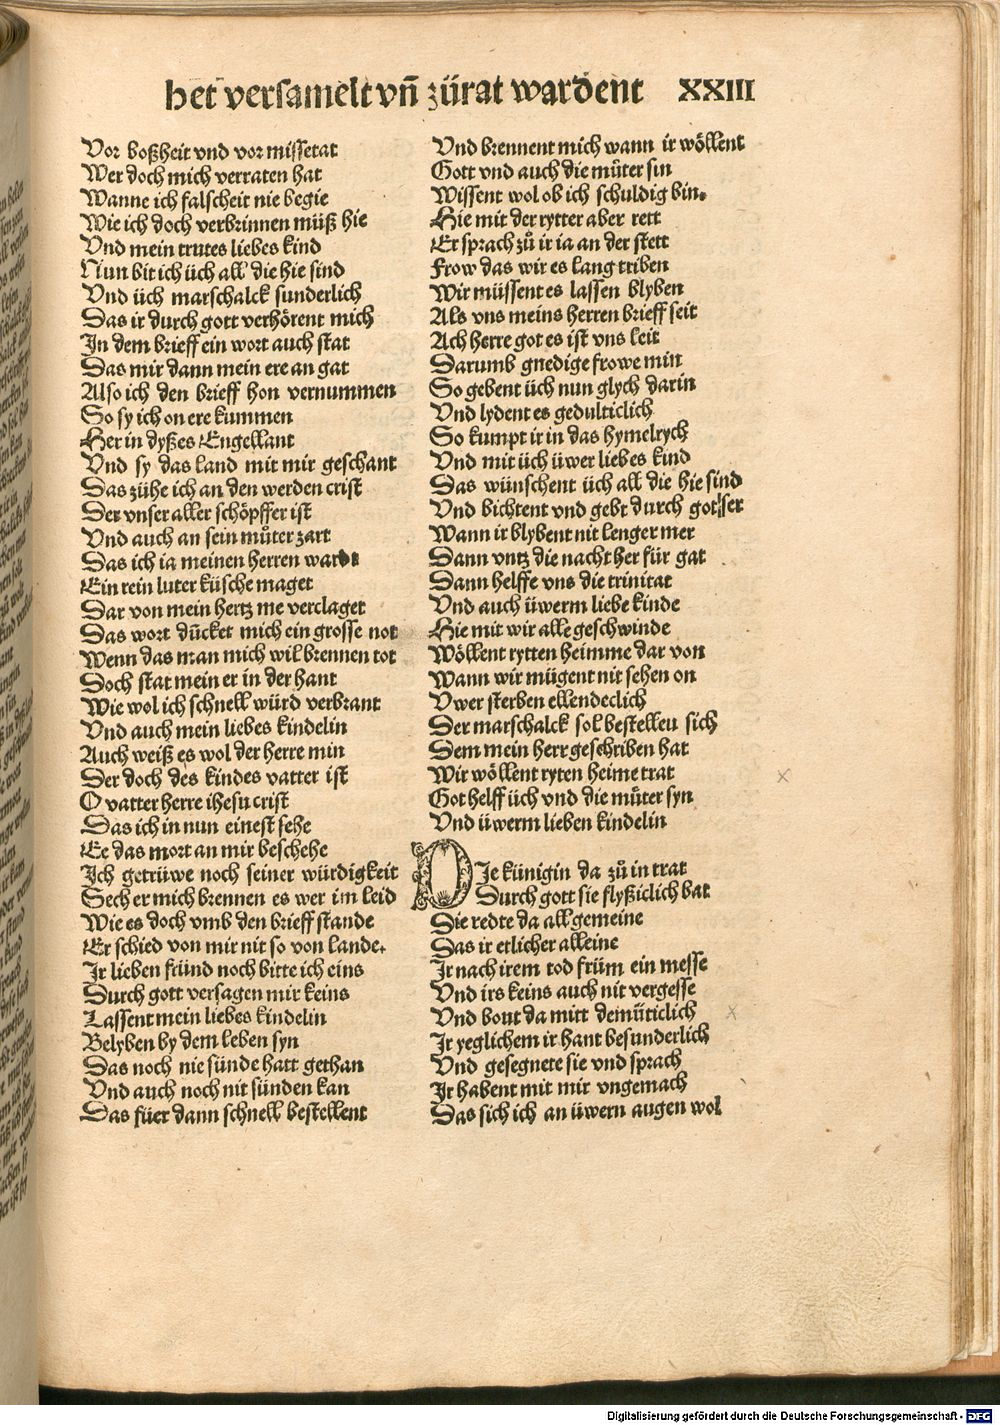 het versamelt vñ zürat wardent XXIII
Vor boßheit vnd vor missetat
Wer doch mich verraten hat
Wanne ich falscheit nie begie
Wie ich doch verbrinnen müß hie
Vnd mein trutes liebes kind
Nun bit ich üch all die hie sind
Vnd üch marschalck sunderlich
Das ir durch gott verhörent mich
In dem brieff ein wort auch stat
Das mir dann mein ere an gat
Also ich den brieff hon vernummen
So sy ich on ere kummen
Her in dyßes Engellant
Vnd sy das land mit mir geschant
Das zühe ich an den werden crist
Der vnser aller schöpffer ist
Vnd auch an sein můter zart
Das ich ia meinen herren wardt
Ein rein luter küsche maget
Dar von mein hertz me verclaget
Das wort dücket mich ein grosse not
Wenn das man mich wil brennen tot
Doch stat mein er in der hant
Wie wol ich schnell würd verbrant
Vnd auch mein liebes kindelin
Auch weiß es wol der herre min
Der doch des kindes vatter ist
O vatter herre ihesu crist
Das ich in nun einest sehe
Ee das mort an mir beschehe
Ich getrüwe noch seiner würdigkeit
Sech er mich brennen es wer im leid
Wie es doch vmb den brieff stande
Er schied von mir nit so von lande.
Ir lieben fründ noch bitte ich eins
Durch gott versagen mir keins
Lassent mein liebes kindelin
Belyben by dem leben syn
Das noch nie sünde hatt gethan
Vnd auch noch nit sünden kan
Das füer dann schnell bestellent
Vnd brennent mich wann ir wöllent
Gott vnd auch die můter sin
Wissent wol ob ich schuldig bin.
Hie mit der rytter aber rett
Er sprach zů ir ia an der stett
Frow das wir es lang triben
Wir müssent es lassen blyben
Als vns meins herren brieff seit
Ach herre got es ist vns leit
Darumb gnedige frowe min
So gebent üch nun glych darin
Vnd lydent es gedulticlich
So kumpt ir in das hymelrych
Vnd mit üch üwer liebes kind
Das wünschent üch all die hie sind
Vnd bichtent vnd gebt durch gotser
Wann ir blybent nit lenger mer
Dann vntz die nacht her für gat
Dann helffe vns die trinitat
Vnd auch üwerm liebe kinde
Hie mit wir alle geschwinde
Wöllent rytten heimme dar von
Wann wir mügent nit sehen on
Vwer sterben ellendeclich
Der marschalck sol bestelleu sich
Dem mein herr geschriben hat
Wir wöllent ryten heime trat
Got helff üch vnd die můter syn
Vnd üwerm lieben kindelin
DIe künigin da zů in trat
Durch gott sie flyßiclich bat
Die redte da all gemeine
Das ir etlicher alleine
Ir nach irem tod früm ein messe
Vnd irs keins auch nit vergesse
Vnd bout da mitt demüticlich
Ir yeglichem ir hant besunderlich
Vnd gesegnete sie vnd sprach
Ir habent mit mir vngemach
Das sich ich an üwern augen wol
Digitalisierung gefördert durch die Deutsche Forschungsgemeinschaft - DFG